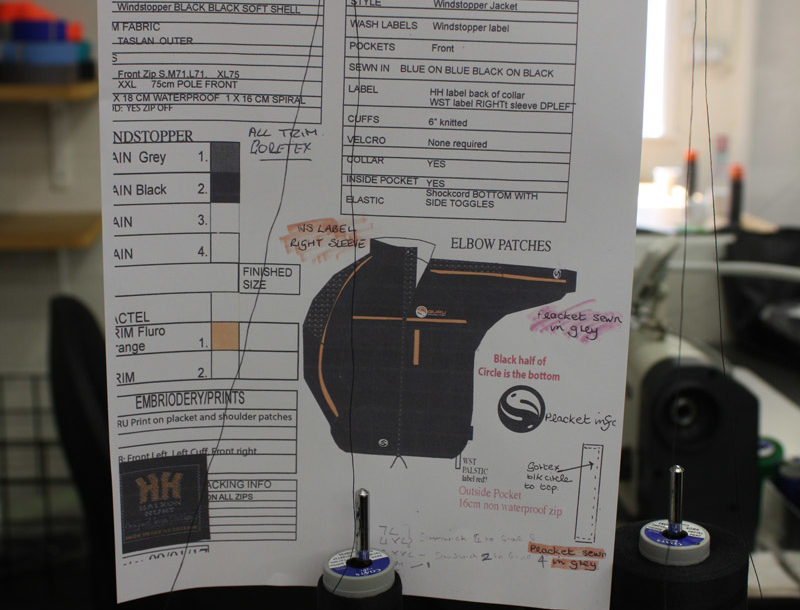 Windstopper BLACK BLACK SOFT SHELL
M FABRIC
TASLAN OUTER
S
Front Zip S,M71,L71, XL75
XXL 75cm POLE FRONT
X 18 CM WATERPROOF 1 X 16 CM SPIRAL
OD: YES ZIP OFF
NDSTOPPER
AIN Grey 1.
AIN Black 2.
AIN 3.
AIN 4.
FINISHED
SIZE
ACTEL
RIM Fluro
range 1.
RIM 2.
EMBRIODERY/PRINTS
RU Print on placket and shoulder patches
R: Front Left, Left Cuff Front right
ACKING INFO
ON ALL ZIPS
HH
HALKON
HUNT
ALL TRIM
GORETEX
STYLE Windstopper Jacket
WASH LABELS Windstopper label
POCKETS Front
SEWN IN BLUE ON BLUE BLACK ON BLACK
LABEL HH label back of collar
WST label RIGHTt sleeve DPLEFT
CUFFS 6" knitted
VELCRO None required
COLLAR YES
INSIDE POCKET YES
ELASTIC Shockcord BOTTOM WITH
SIDE TOGGLES
WS LABEL
RIGHT SLEEVE
ELBOW PATCHES
GURU
Placket sewn
in grey
Black half of
Circle is the bottom
Placket
WST
PALSTIC
label red?
Gortex
blk circle
to top
Outside Pocket
16cm non waterproof zip
Placket sewn
in grey